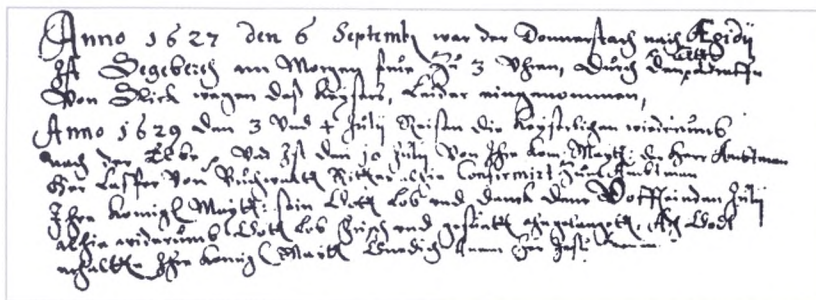 Anno 1627 den 6 Septemb war der Donnerstach nach Ægidij
Ist Segeberch am Morgen frue Zu 3 Uhren, durch den
Von Slick wegen daß Keysers, Leider eingenommen,
Anno 1629 den 3 Und 4 Julij Reisen die Keyserlichen wiederumb
nach der Elbe, Und Ist den 10 Julij Von Ihr Kön. Maytt: der Herr Ambtman
Her Casper Von Buchwaltt Ritter alhie Confirmirt Zum Ambtman
Ihre Königl Maytt: sein Gott Lob und danck den Julij
alhie wiederumb Gott Lob frisch und gesundt angelanget, Ach Gott
erhaltte Ihre Königl Maytt